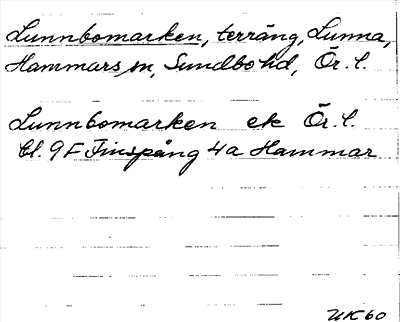 Lunnbomarken, terräng, Lunna,
Hammars sn, Sundbo hd, Ör. l.
Lunnbomarken ek Ör. l.
Bl. 9F Finspång 4a Hammar
UK60